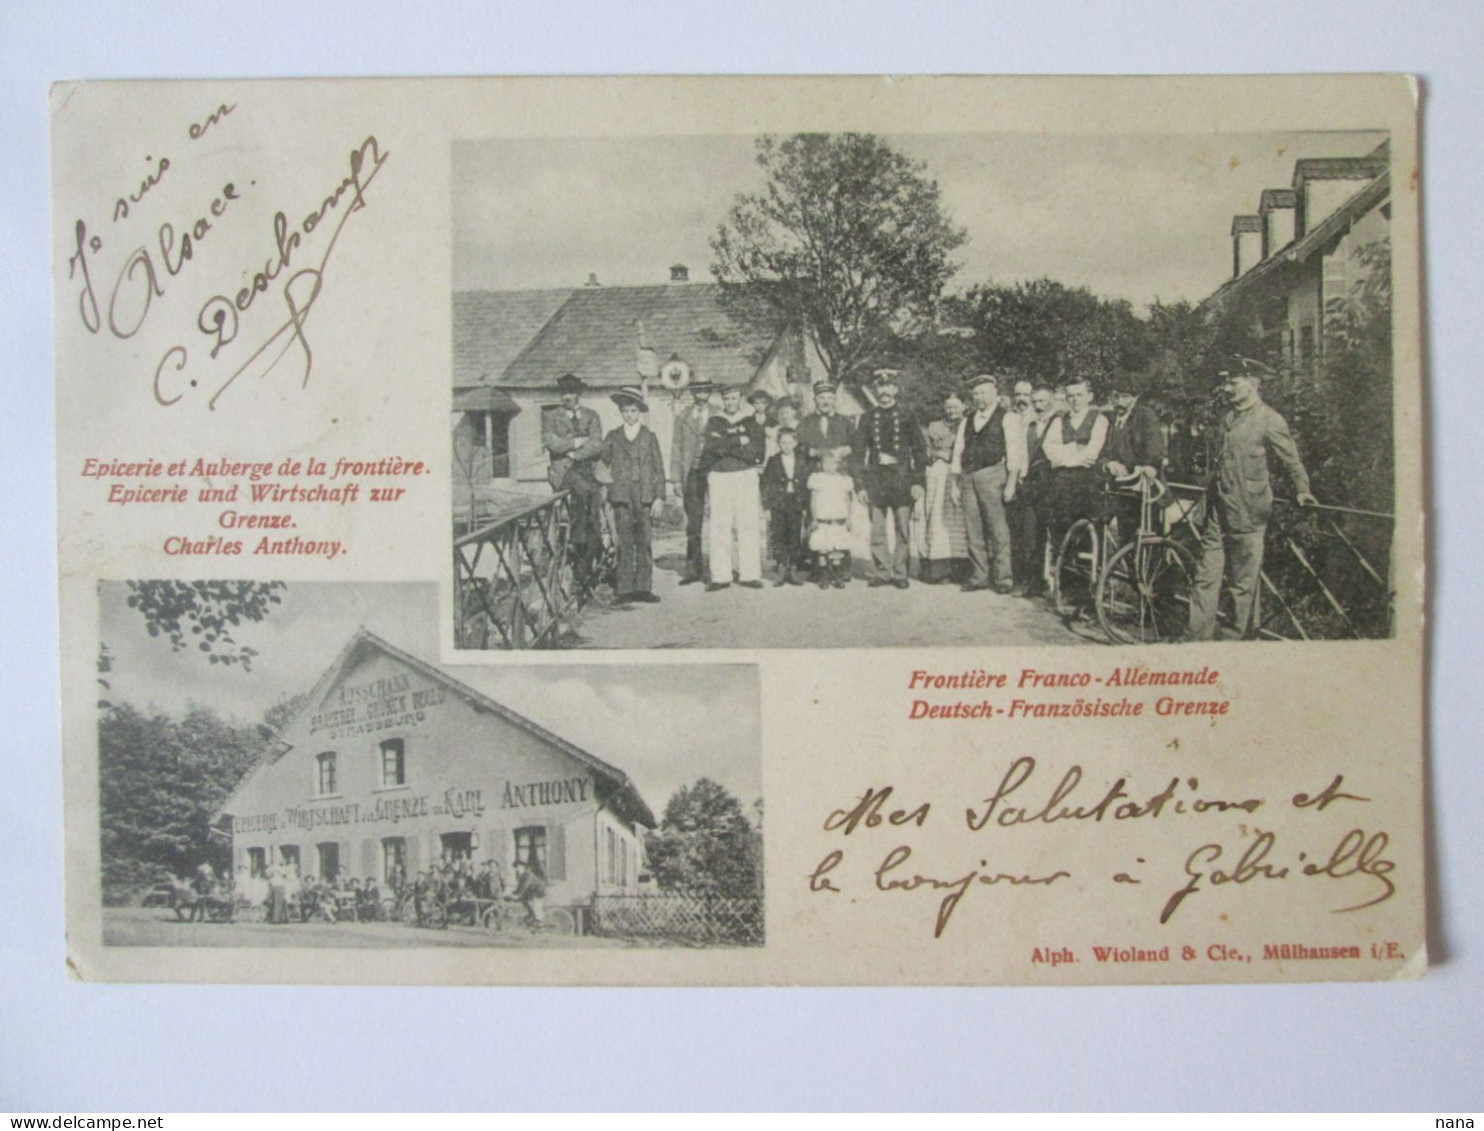 Je suis en
Alsace.
C. Deschamps
Epicerie et Auberge de la frontière.
Epicerie und Wirtschaft zur
Grenze.
Charles Anthony.
AUSSCHANK
BRAUEREI GRÜNEN WALD
STRASSBURG
EPICERIE u WIRTSCHAFT zur GRENZE von KARL ANTHONY
Frontière Franco-Allemande
Deutsch-Französische Grenze
Mes Salutations et
le bonjour à Gabrielle
Alph. Wioland & Cie., Mülhausen i/E.
nana